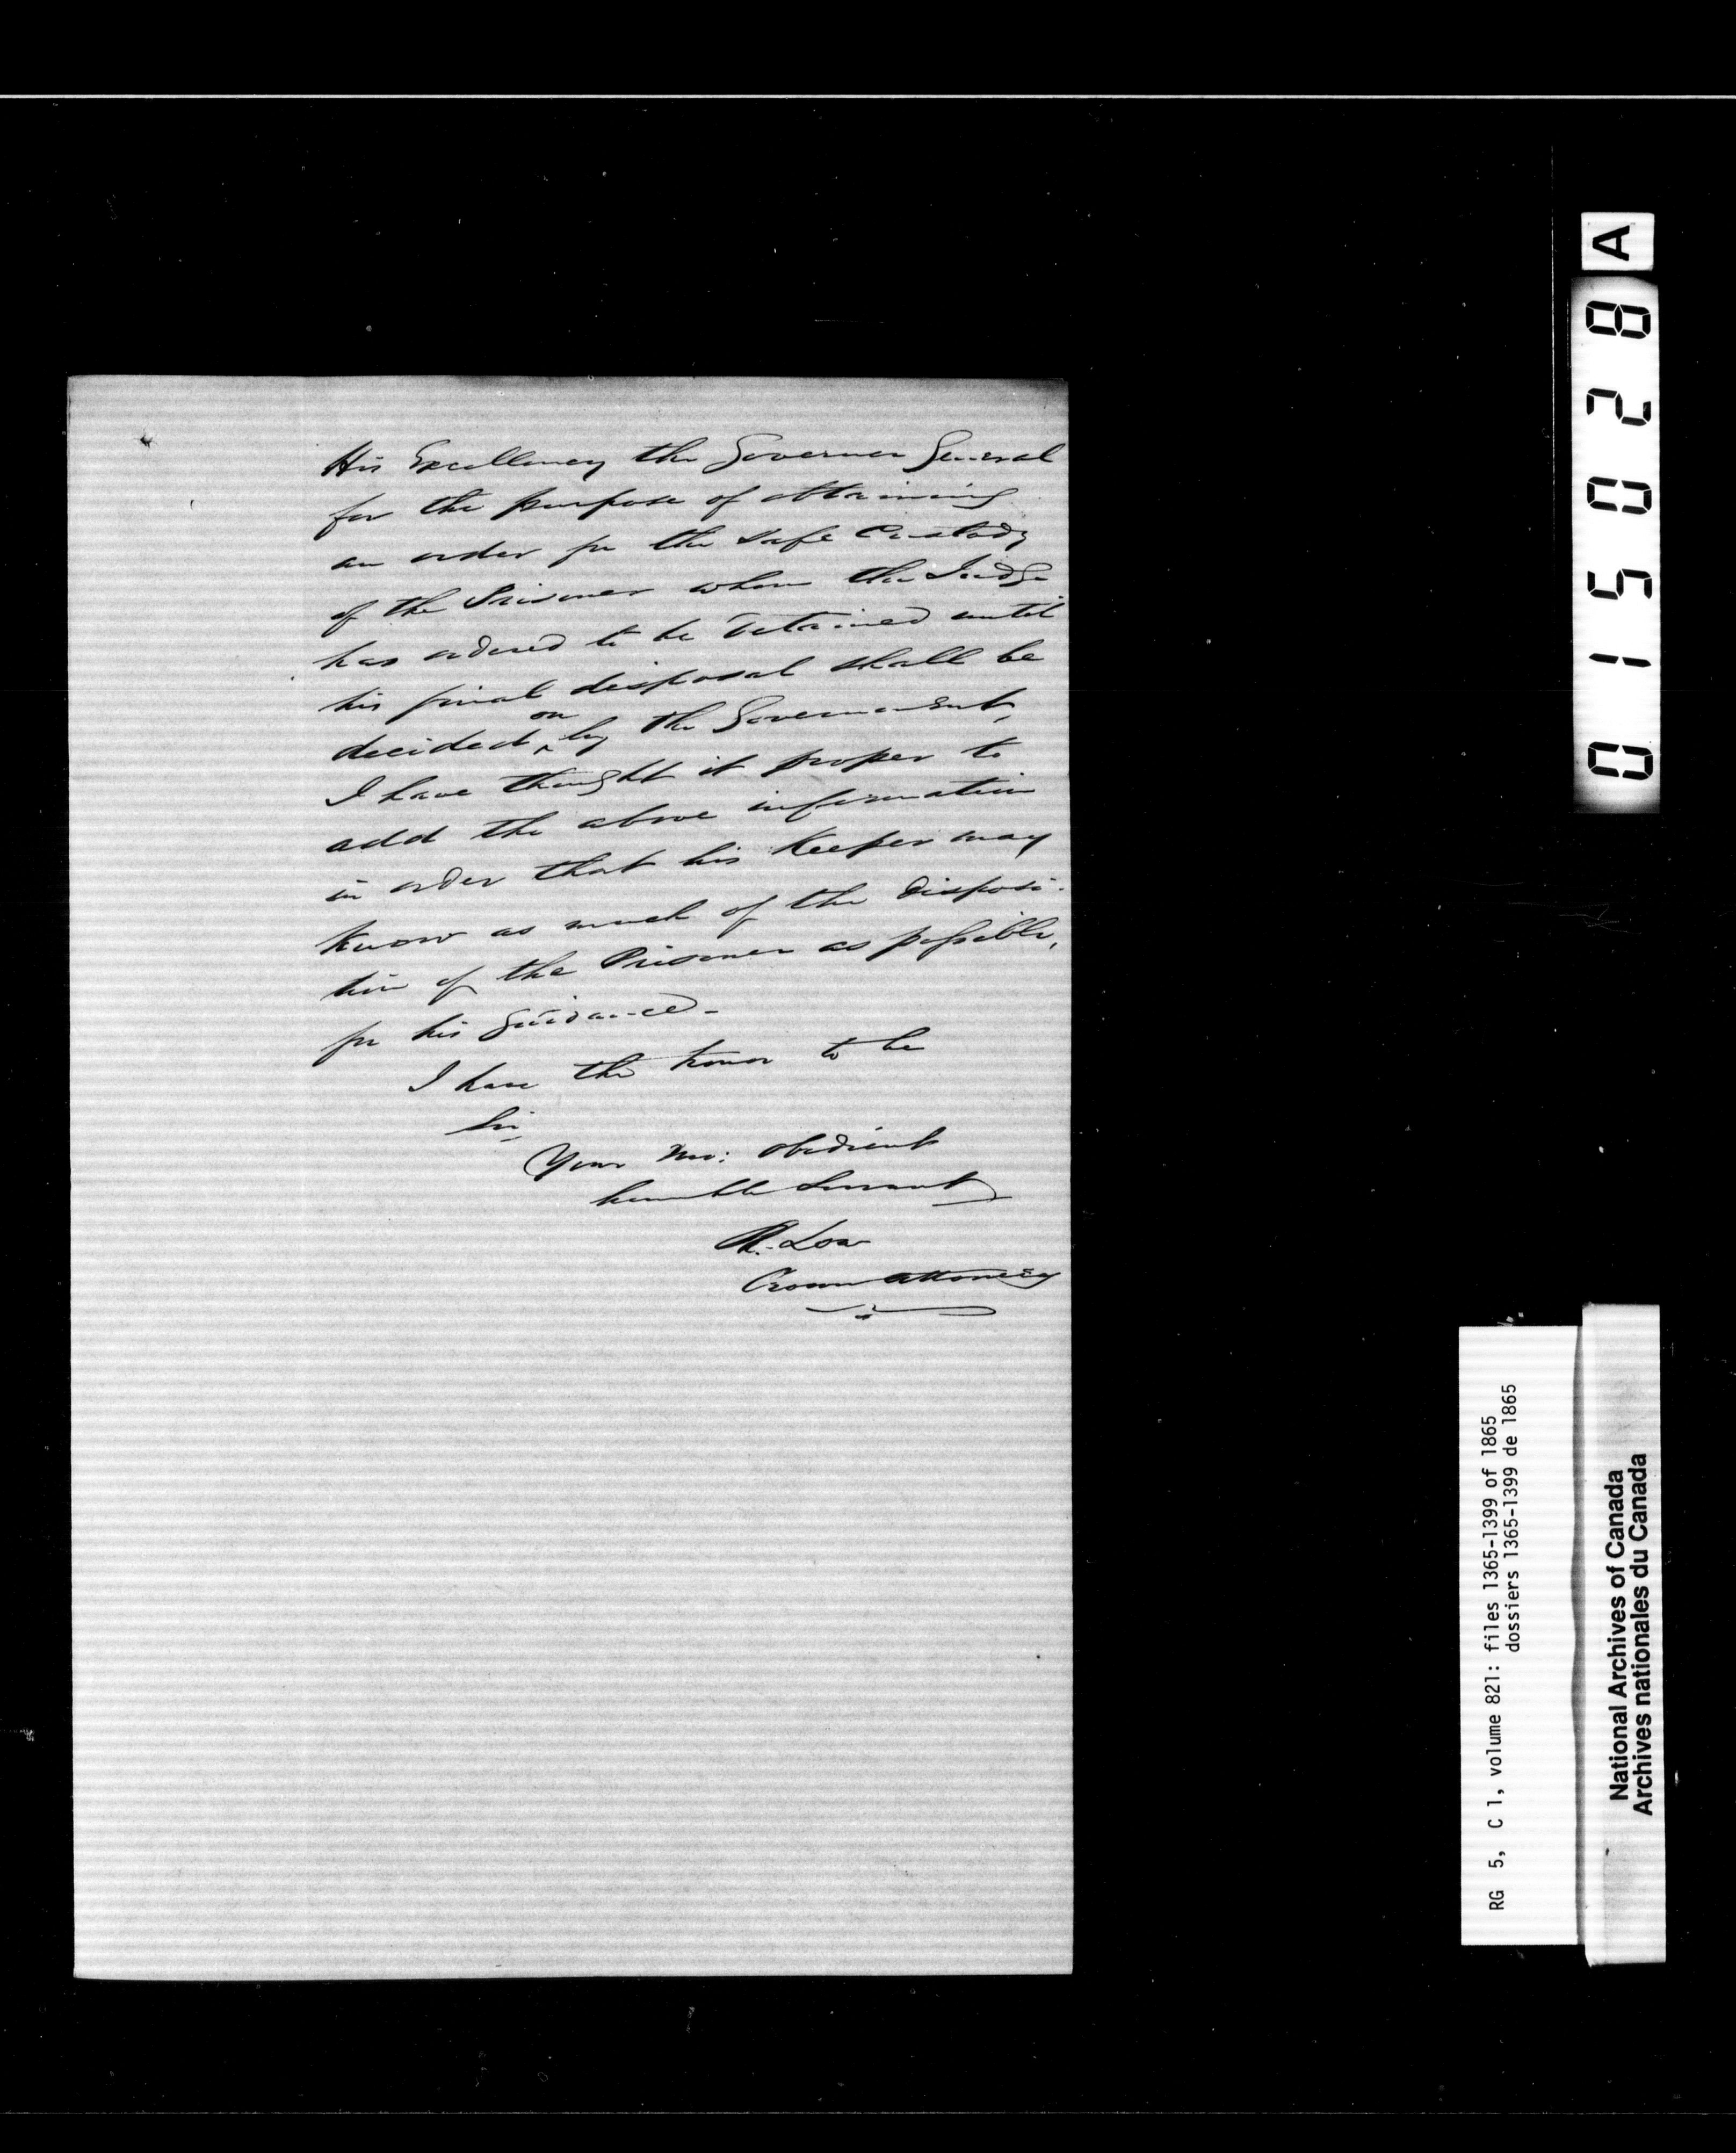 His Excellency the Governor General
for the purpose of obtaining
an order for the safe Custody
of the Prisoner whom the Judge
has ordered to be detained until
his final disposal shall be
decided on by the Government,
I have thought it proper to
add the above information
in order that his Keeper may
know as much of the disposi-
tion of the Prisoner as possible,
for his guidance -
I have the honor to be
Sir,
Your Mo: obedient
humble Servant
Crown Attorney
A
015028
RG 5, C 1, volume 821: files 1365-1399 of 1865
dossiers 1365-1399 de 1865
National Archives of Canada
Archives nationales du Canada